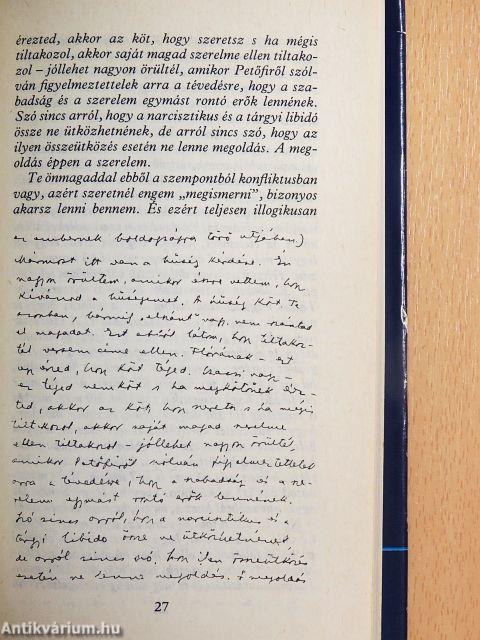 érezted, akkor az köt, hogy szeretsz s ha mégis
tiltakozol, akkor saját magad szerelme ellen tiltako-
zol – jóllehet nagyon örültél, amikor Petőfiről szól-
ván figyelmeztettelek arra a tévedésre, hogy a sza-
badság és a szerelem egymást rontó erők lennének.
Szó sincs arról, hogy a narcisztikus és a tárgyi libidó
össze ne ütközhetnének, de arról sincs szó, hogy az
ilyen összeütközés esetén ne lenne megoldás. A meg-
oldás éppen a szerelem.
Te önmagaddal ebből a szempontból konfliktusban
vagy, azért szeretnél engem „megismerni", bizonyos
akarsz lenni bennem. És ezért teljesen illogikusan
az embernek boldogságra törő útjában.)
Mármost itt van a hűség kérdése. Én
nagyon örültem, amikor észre vettem, hogy
kívánod a hűségemet. A hűség köt. Te
azonban, bármily „elszánt" vagy, nem szántad
el magadat. Ezt abból látom, hogy tiltakoz-
tál versem címe ellen. Flórának – ezt
úgy érzed, hogy köt téged. Igazi vagy –
ez téged nem köt s ha megkötőnek érez-
ted, akkor az köt, hogy szeretsz s ha mégis
tiltakozol, akkor saját magad szerelme
ellen tiltakozol – jóllehet nagyon örültél,
amikor Petőfiről szólván figyelmeztettelek
arra a tévedésre, hogy a szabadság és a sze-
relem egymást rontó erők lennének.
Szó sincs arról, hogy a narcisztikus és a
tárgyi libido össze ne ütközhetnének
de arról sincs szó, hogy ilyen összeütközés
esetén ne lenne megoldás. A megoldás
27
Antikvárium.hu